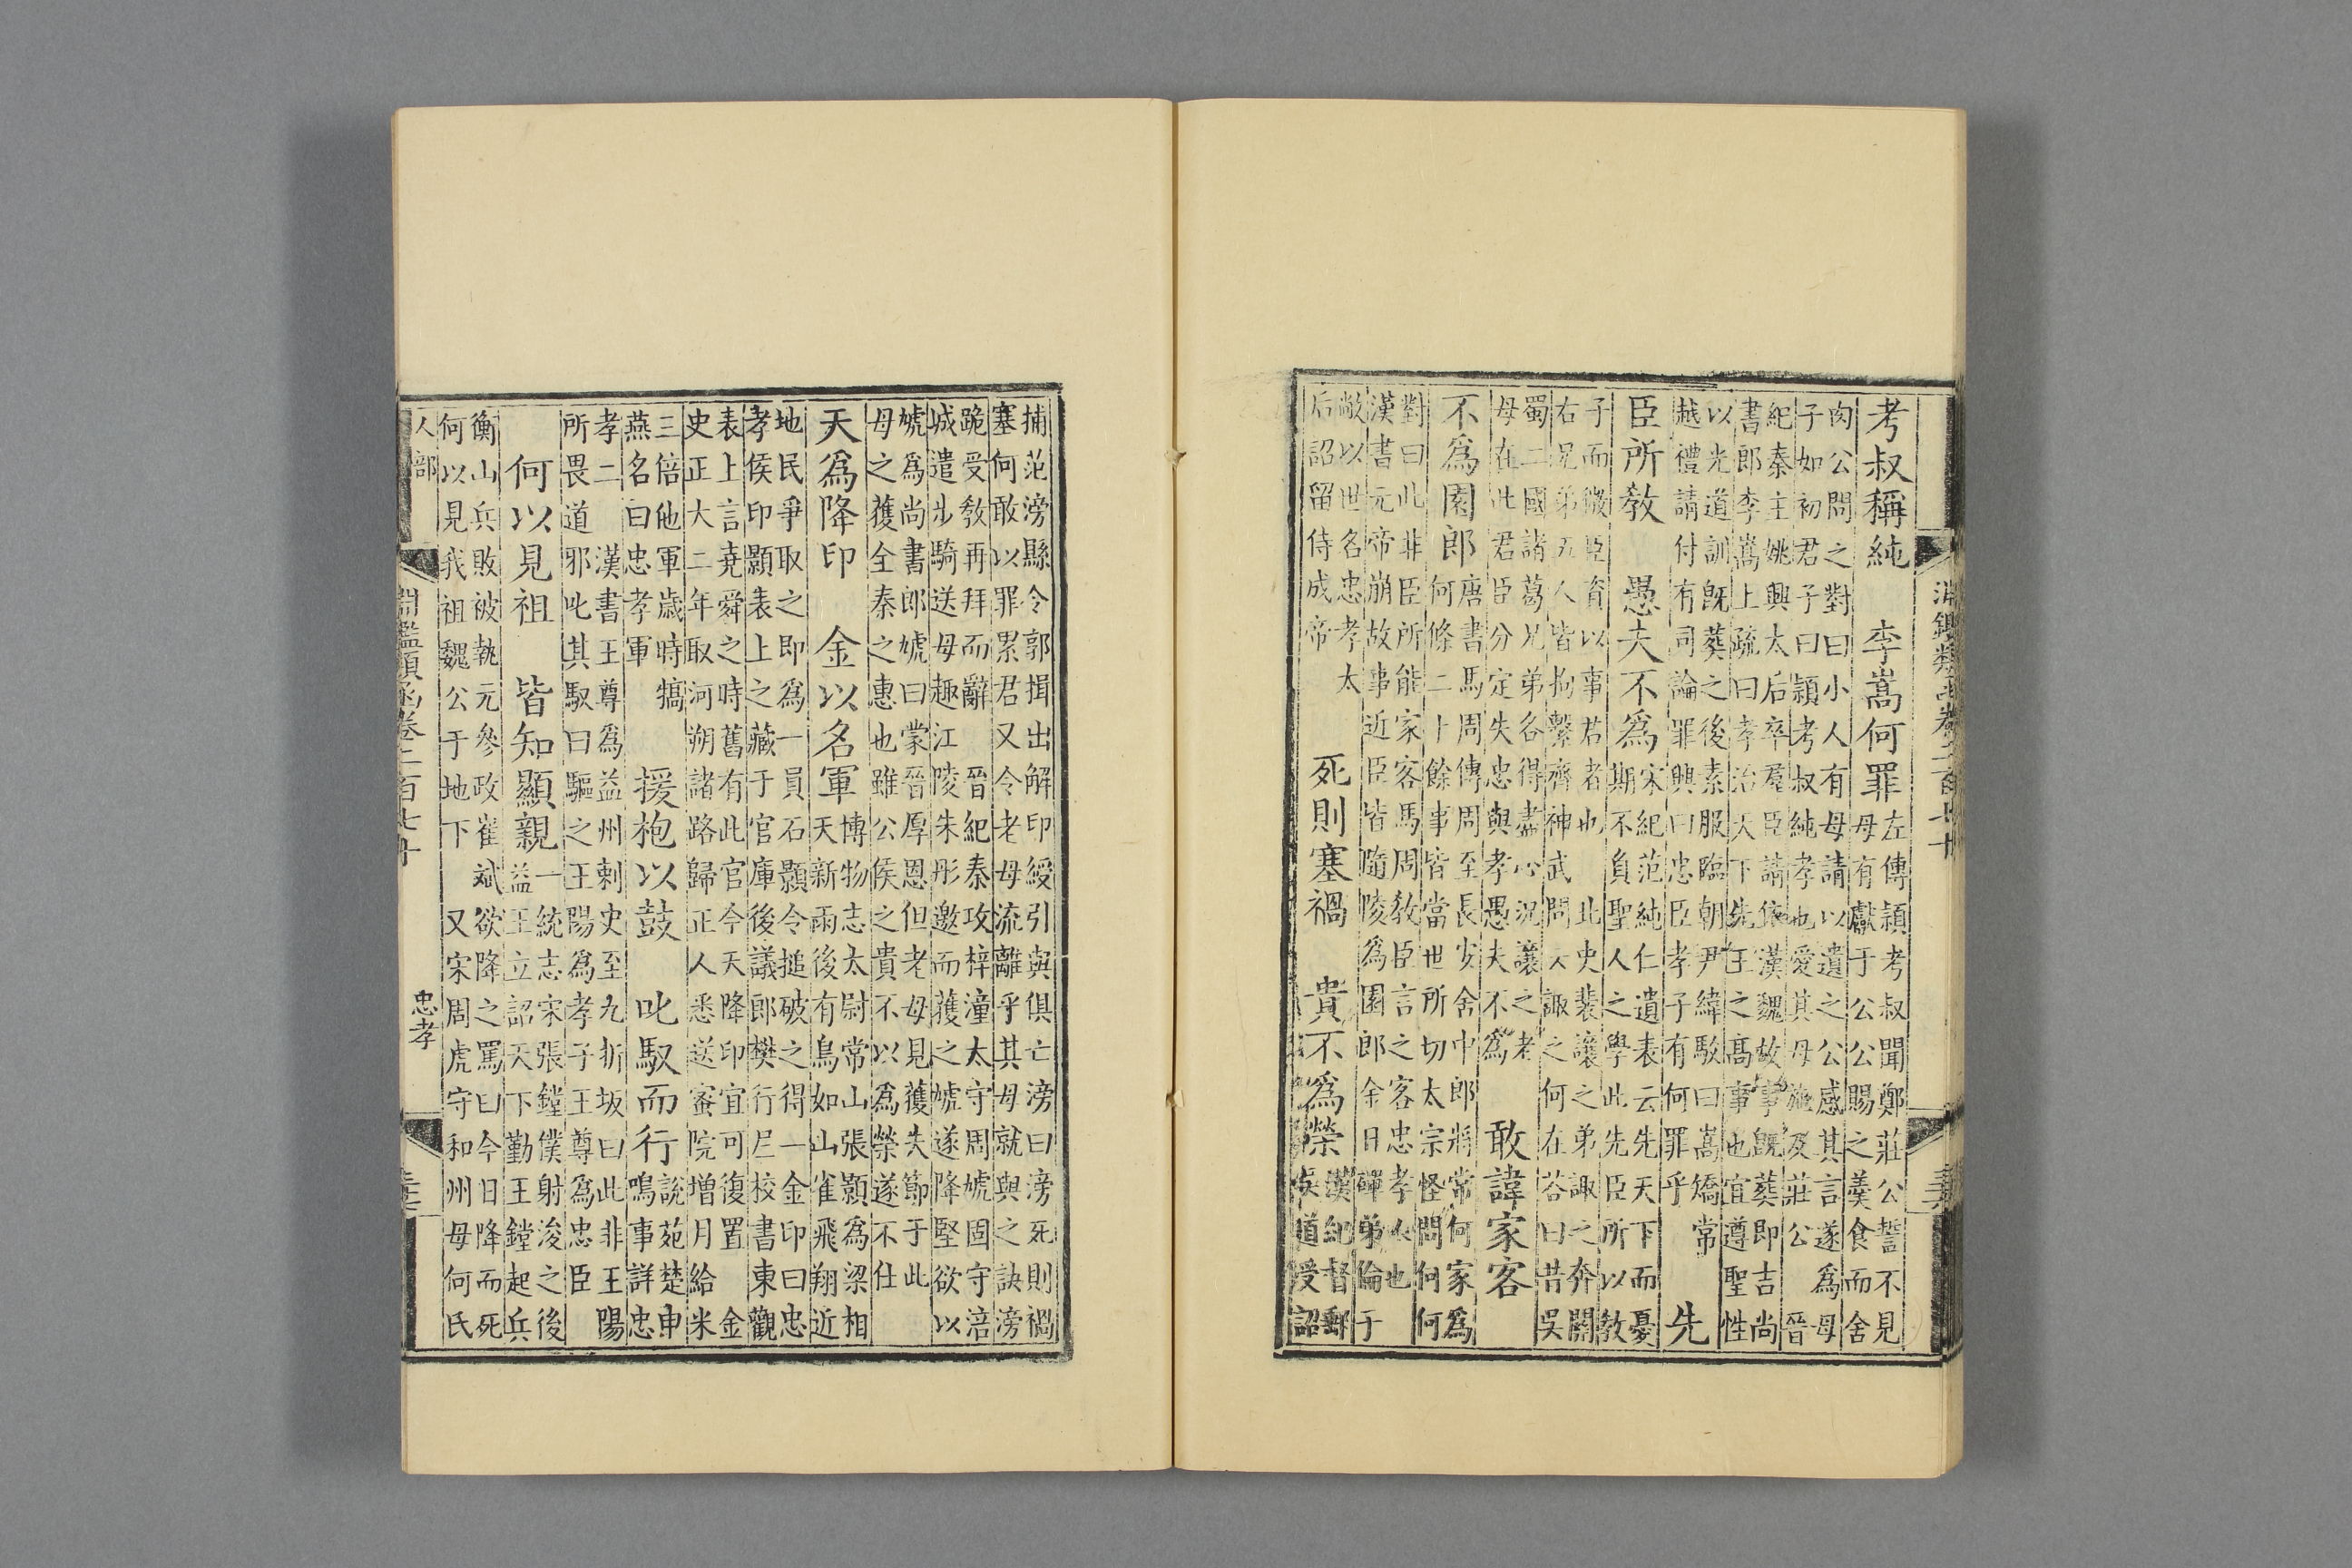 淵鑑類函卷二百七十
考叔稱純　李嵩何罪
左傳頴考叔聞鄭莊公誓不見
母有獻于公公賜之羹食而舍
肉公問之對曰小人有母請以遺之公感其言遂爲母
子如初君子曰頴考叔純孝也愛其母施及莊公　晉
紀秦主姚興太后卒羣臣請依漢魏故事旣葬即吉尚
書郎李嵩上疏曰孝治天下先王之髙事也宜遵聖性
以光道訓旣葬之後素服臨朝尹緯駮曰嵩矯常
越禮請付有司論罪興曰忠臣孝子有何罪乎
先
臣所教　愚夫不爲
宋紀范純仁遺表云先天下而憂
期不負聖人之學此先臣所以教
子而微臣資以事君者也　此史裴讓之弟諏之奔關
右兄弟五人皆拘繫齊神武問云諏之何在答曰昔吳
蜀二國諸葛兄弟各得盡心況讓之老
母在此君臣分定失忠與孝愚夫不爲
敢諱家客
不爲園郎
唐書馬周傳周至長安舍中郎將常何家爲
何條二十餘事皆當世所切太宗怪問何何
對曰此非臣所能家客馬周教臣言之客忠孝人也
漢書元帝崩故事近臣皆隨陵爲園郎余日磾弟倫于
敞以世名忠孝太
后詔留侍成帝
死則塞禍　貴不爲榮
漢紀督郵
吳道受詔
捕范滂縣令郭揖出解印綬引與俱亡滂曰滂死則禍
塞何敢以罪累君又令老母流離乎其母就與之訣滂
跪受教再拜而辭　晉紀秦攻梓潼太守周虓固守涪
城遣步騎送母趣江陵朱彤邀而獲之虓遂降堅欲以
虓爲尚書郎虓曰蒙晉厚恩但老母見獲失節于此
母之獲全秦之惠也雖公侯之貴不以爲榮遂不仕
天爲降印　金以名軍
博物志太尉常山張顥爲梁相
天新雨後有鳥如山雀飛翔近
地民爭取之即爲一員石顥令搥破之得一金印曰忠
孝侯印顥表上之藏于官庫後議郎樊行尼校書東觀
表上言堯舜之時舊有此官今天降印宜可復置　金
史正大二年取河朔諸路歸正人悉送蜜院增月給米
三倍他軍歲時犒
燕名曰忠孝軍
援枹以鼓　叱馭而行
說苑楚申
鳴事詳忠
孝二　漢書王尊爲益州刺史至九折坂曰此非王陽
所畏道邪叱其馭曰驅之王陽爲孝子王尊爲忠臣
何以見祖　皆知顯親
一統志宋張鏜僕射浚之後
益王立詔天下勤王鏜起兵
衡山兵敗被執元參政崔斌欲降之罵曰今日降而死
何以見我祖魏公于地下　又宋周虎守和州母何氏
人部
淵鑑類函卷二百七十
忠孝